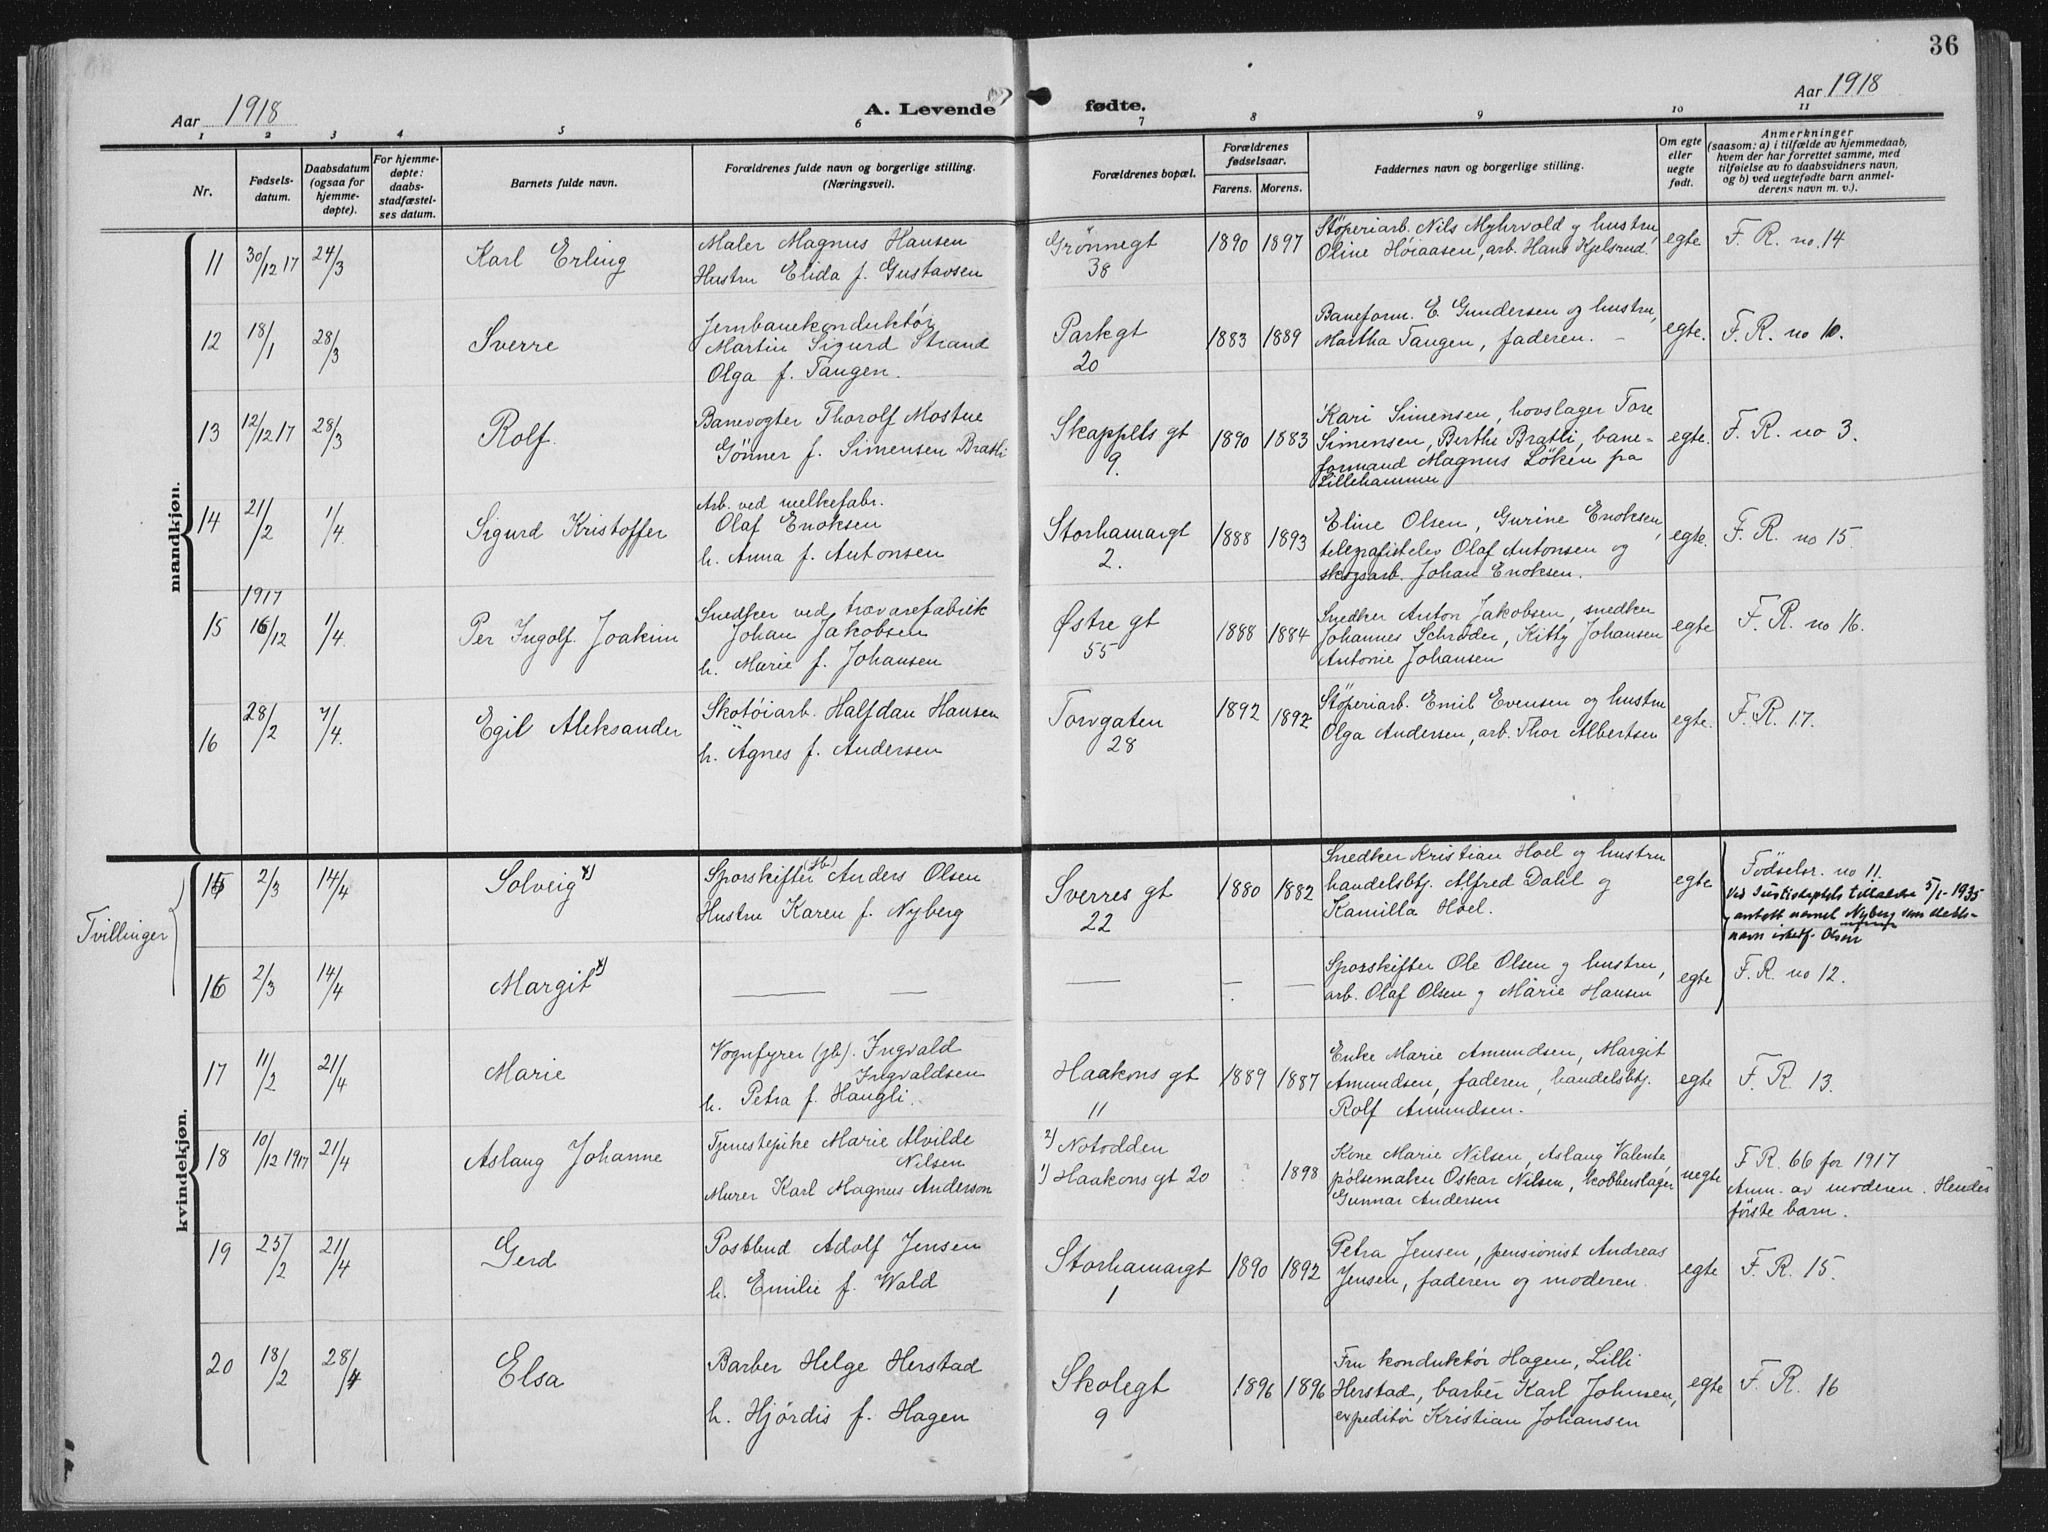 36
Aar 1918
A. Levende fødte.
Aar 1918
1 2 3 4 5 6 7 8 9 10 11
Nr.
Fødsels-
datum.
Daabsdatum
(ogsaa for
hjemme-
døpte).
For hjemme-
døpte:
daabs-
stadfæstel-
ses datum.
Barnets fulde navn.
Forældrenes fulde navn og borgerlige stilling.
(Næringsvei).
Forældrenes bopæl.
Forældrenes
fødselsaar.
Farens. Morens.
Faddernes navn og borgerlige stilling.
Om egte
eller
uegte
født.
Anmerkninger
(saasom: a) i tilfælde av hjemmedaab,
hvem der har forrettet samme, med
tilføielse av to daabsvidners navn,
og b) ved uegtefødte barn anmel-
derens navn m. v.).
mandkjøn.
11 30/12 17 24/3 Karl Erling
Maler Magnus Hansen
Hustru Elida f. Gustavsen
Grønnegt
38
1890 1897
Støperiarb. Nils Myhrvold og hustru,
Oline Høiaasen, arb. Hans Kjelsrud.
egte F. R. no. 14
12 18/1 28/3 Sverre
Jernbanekonduktør
Martin Sigurd Strand
Olga f. Tangen.
Parkgt
20
1883 1889
Baneform. E. Gundersen og hustru,
Martha Tangen, faderen. –
egte. F. R. no 10.
13 12/12 17 28/3 Rolf.
Banevogter Thorolf Mostue
Gønner f. Simensen Bratli
Skappels gt
9.
1890 1883
Kari Simensen, hovslager Tore
Simensen, Berthe Bratli, bane-
formand Magnus Løken pa
Lillehammer
egte. F. R. no 3.
14 21/2 1/4 Sigurd Kristoffer
Arb. ved melkefabr.
Olaf Enoksen
h. Anna f. Antonsen
Storhamargt
2.
1888 1893
Eline Olsen, Gurine Enoksen,
telegrafistelev Olaf Antonsen og
skogsarb. Johan Enoksen.
egte. F. R. no 15.
1917
15 16/12 1/4 Per Ingolf Joakim
Snedker ved trævarefabrik
Johan Jakobsen
h. Marie f. Johansen
Østre gt
55
1888 1884
Snedker Anton Jakobsen, snedker
Johannes Schrøder, Kitty Johansen
Antonie Johansen
egte F. R. no 16.
16 28/2 7/4 Egil Aleksander
Skotøiarb. Halfdan Hansen
h. Agnes f. Andersen
Torvgaten
28
1892 1892
Støperiarb. Emil Evensen og hustru
Olga Andersen, arb. Thor Albertsen
egte. F. R. 17.
kvindekjøn.
Tvillinger
15 2/3 14/4 Solveig x)
Sporskifter (jb) Anders Olsen
Hustru Karen f. Nyberg
Sverres gt
22
1880 1882
Snedker Kristian Hoel og hustru
handelsbtj. Alfred Dahl og
Kamilla Hoel.
egte
Fødselsr. no 11.
Ved Justisdeptets tillatelse 5/1-1935
antatt navnet Nyberg som slekts-
navn istedf. Olsen
16 2/3 14/4 Margit x)
— — — – —
Sporskifter Ole Olsen og hustru,
arb. Olaf Olsen og Marie Hansen
egte F. R. no 12.
17 11/2 21/4 Marie
Vognfyrer (jb). Ingvald
Ingvaldsen
h. Petra f. Haugli.
Haakons gt
11
1889 1887
Enke Marie Amundsen, Margit
Amundsen, faderen, handelsbtj.
Rolf Amundsen.
egte F. R. 13.
18 10/12 1917 21/4 Aslaug Johanne
Tjenestepike Marie Alvilde
Nilsen
Murer Karl Magnus Anderson
2) Notodden
1) Haakons gt 20
? 1898
Kone Marie Nilsen, Aslaug Valente
pølsemaker Oskar Nilsen, kobberslager
Gunnar Andersen
uegte
F. R. 66 for 1917
Anm. av moderen. Hendes
første barn.
19 25/2 21/4 Gerd
Postbud Adolf Jensen
h. Emilie f. Wold
Storhamargt
1
1890 1892
Petra Jensen, pensionist Andreas
Jensen, faderen og moderen.
egte F. R. 15.
20 18/2 28/4 Elsa
Barber Helge Herstad
h. Hjørdis f. Hagen
Skolegt
9
1896 1896
Fru konduktør Hagen, Lilli
Herstad, barber Karl Johnsen,
expeditør Kristian Johansen
egte F. R. 16